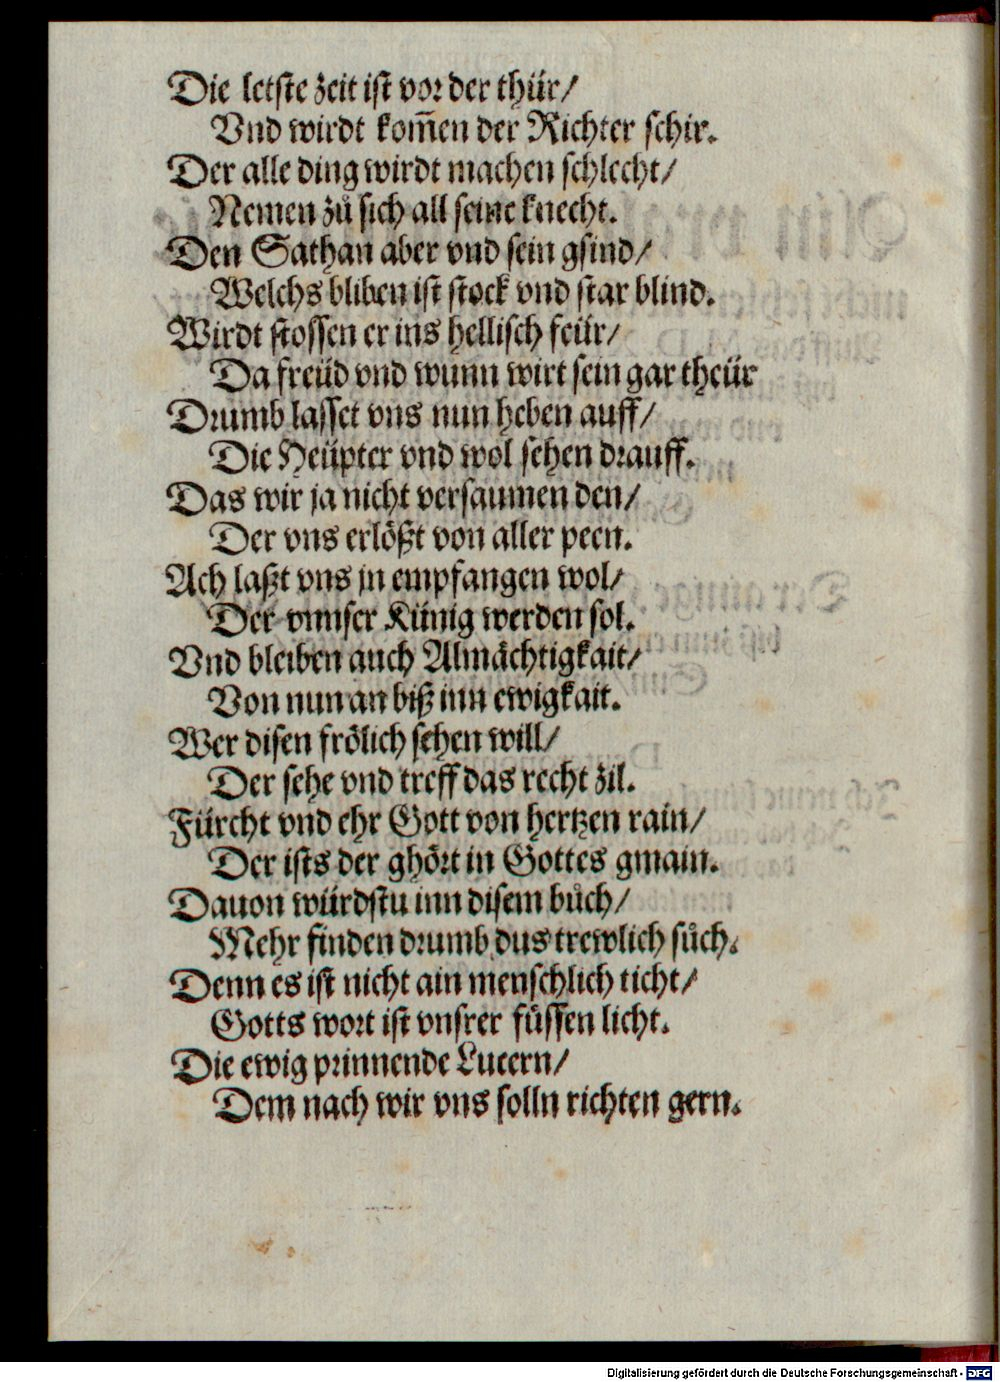 Die letste zeit ist vor der thür/
Vnd wirdt kom̃en der Richter schir.
Der alle ding wirdt machen schlecht/
Nemen zů sich all seine knecht.
Den Sathan aber vnd sein gsind/
Welchs bliben ist stock vnd star blind.
Wirdt stossen er ins hellisch feür/
Da freüd vnd wunn wirt sein gar theür
Drumb lasset vns nun heben auff/
Die Heüpter vnd wol sehen drauff.
Das wir ja nicht versaumen den/
Der vns erlößt von aller peen.
Ach laßt vns jn empfangen wol/
Der vnnser Künig werden sol.
Vnd bleiben auch Almächtigkait/
Von nun an biß inn ewigkait.
Wer disen frölich sehen will/
Der sehe vnd treff das recht zil.
Fürcht vnd ehr Gott von hertzen rain/
Der ists der ghört in Gottes gmain.
Dauon würdstu inn disem bůch/
Mehr finden drumb dus trewlich sůch.
Denn es ist nicht ain menschlich ticht/
Gotts wort ist vnsrer füssen licht.
Die ewig prinnende Lucern/
Dem nach wir vns solln richten gern.
Digitalisierung gefördert durch die Deutsche Forschungsgemeinschaft - DFG